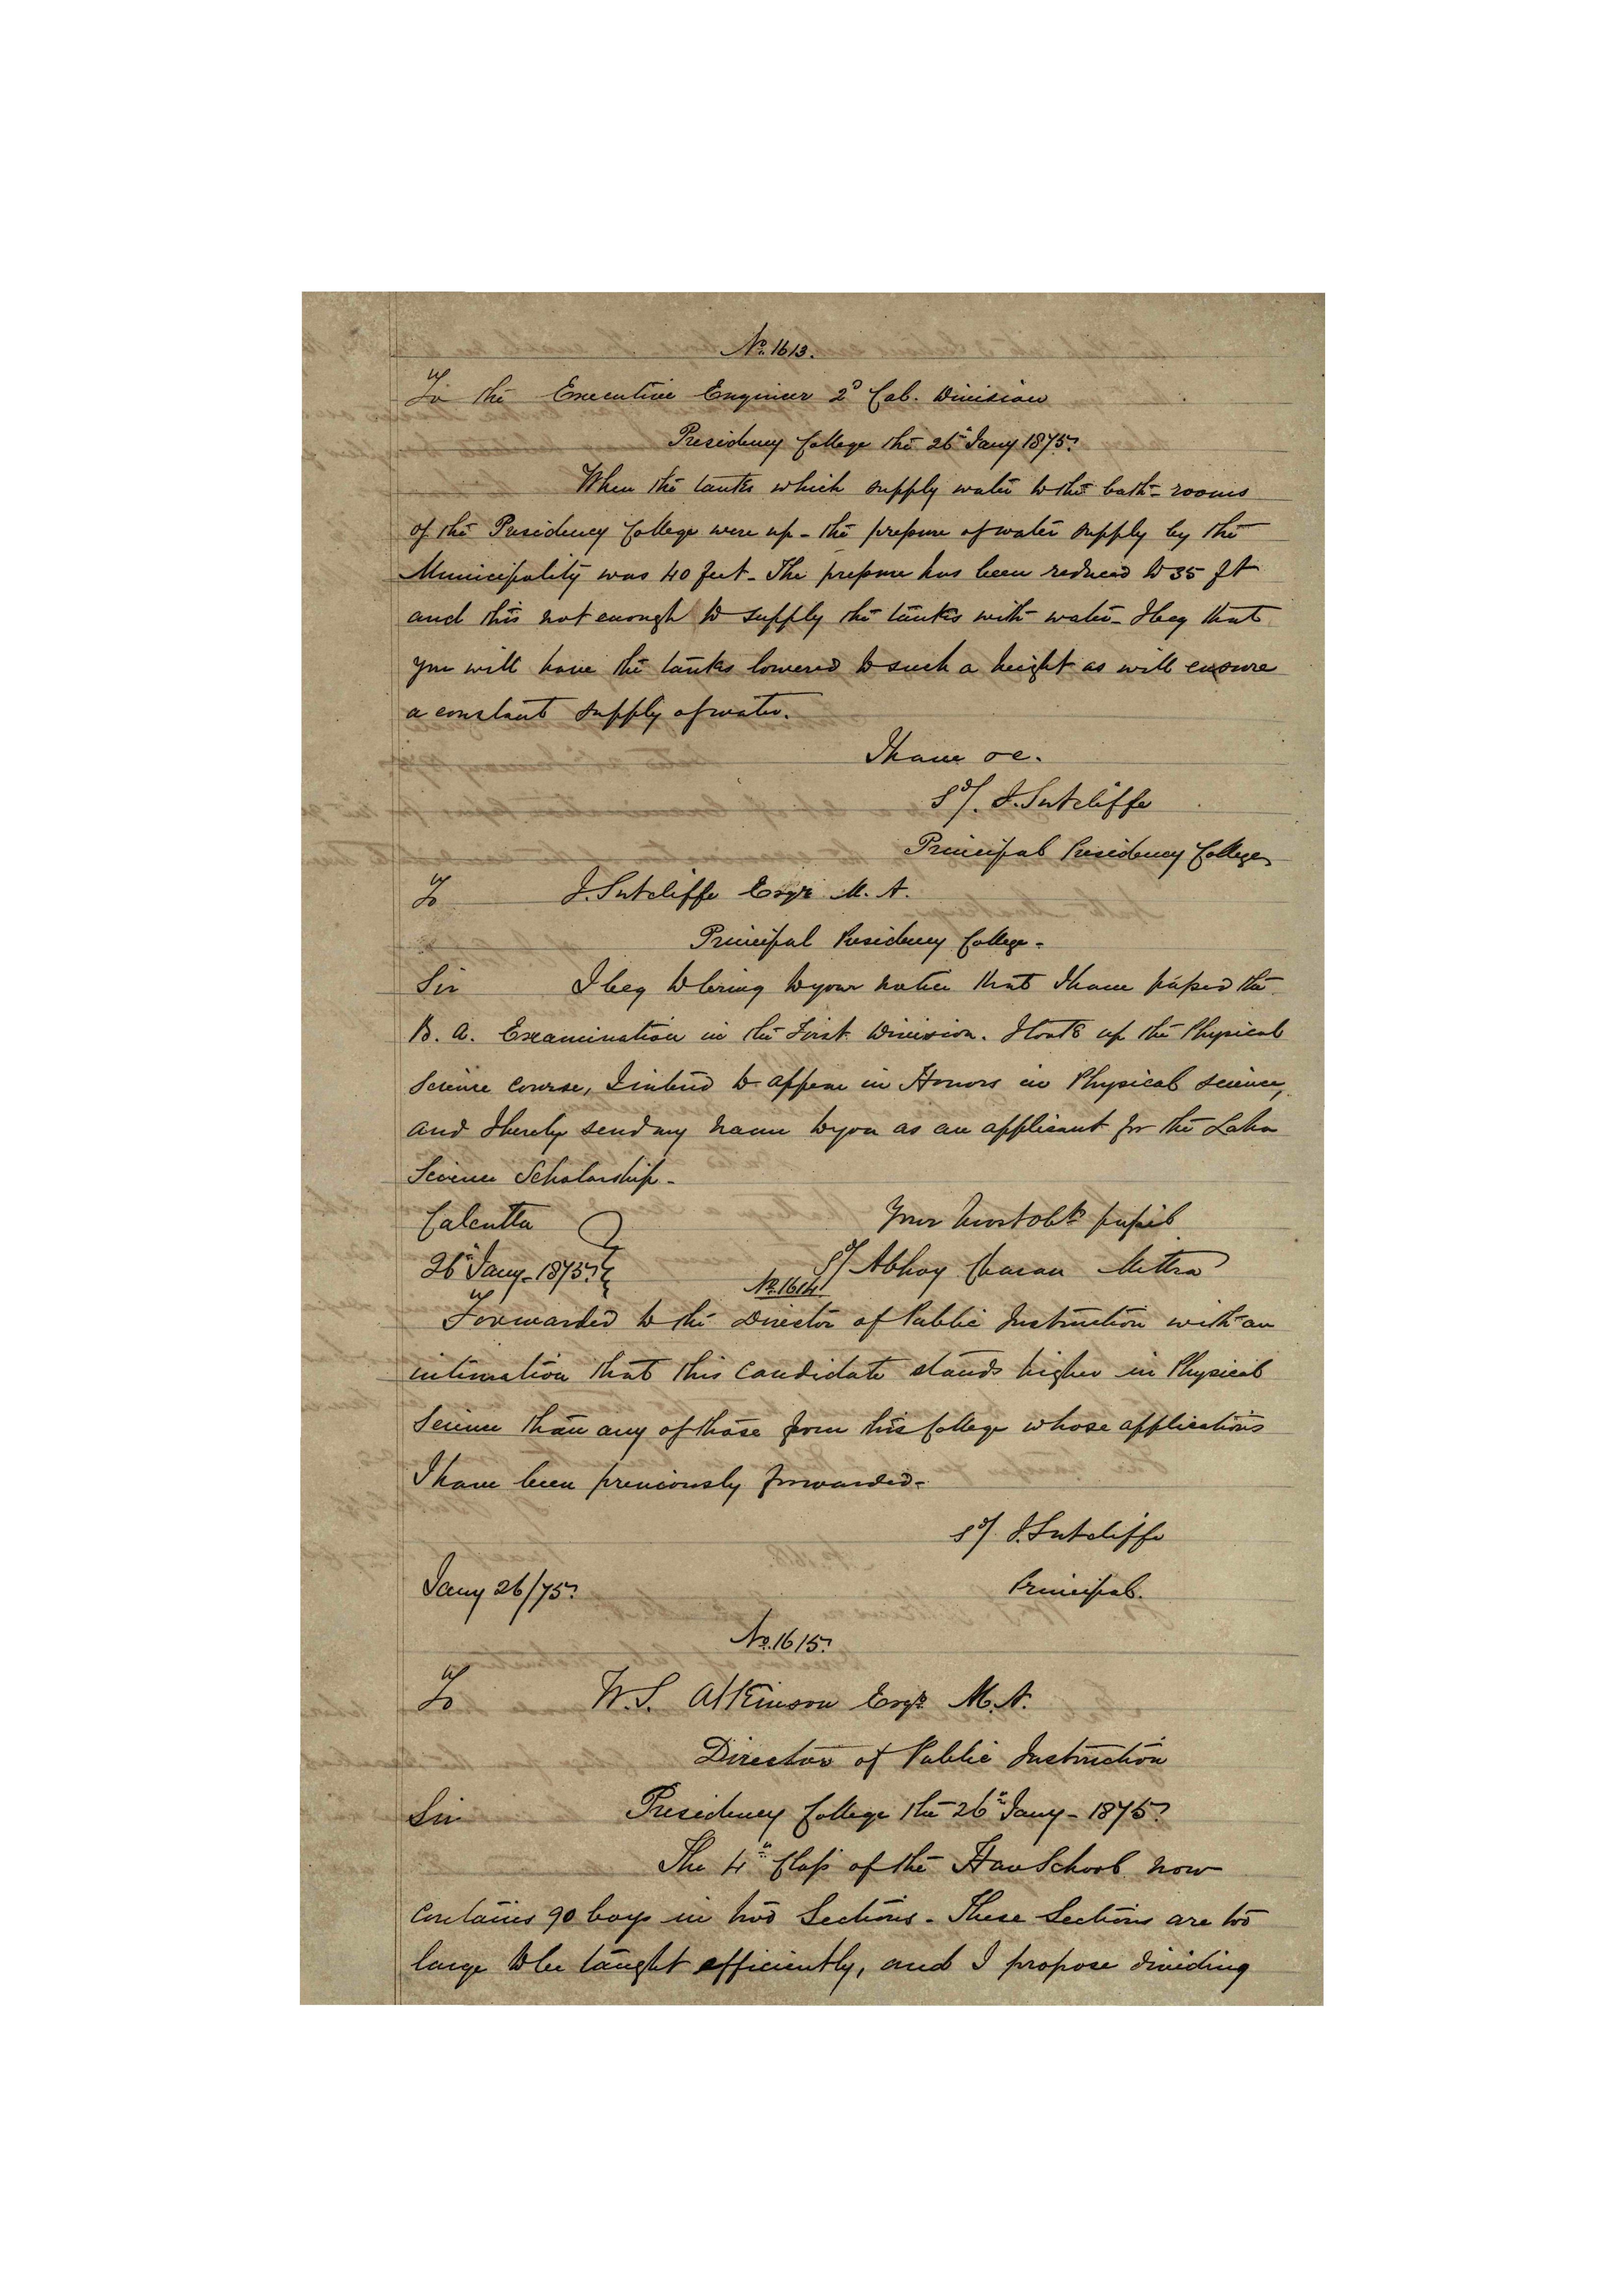 No. 1613.
To the Executive Engineer 2d Cal. Division
Presidency College the 26th Jany 1875.
When the tanks which supply water to the bath-rooms
of the Presidency College were up - the pressure of water supply by the
Municipality was 40 feet - The pressure has been reduced to 35 ft
and this not enough to supply the tanks with water - I beg that
you will have the tanks lowered to such a height as will ensure
a constant supply of water.
I have &c.
Sd/. J. Sutcliffe
Principal Presidency College
To J. Sutcliffe Esqr. M. A.
Principal Presidency College -
Sir I beg to bring to your notice that I have passed the
B. A. Examination in the First Division. I took up the Physical
Science Course, I intend to appear in Honors in Physical Science,
and I hereby send my name to you as an applicant for the Laha
Science Scholarship -
Calcutta Your most obt. pupil
26th Jany - 1875. Sd/ Abhoy Charan Mittra
No. 1614
Forwarded to the Director of Public Instruction with an
intimation that this Candidate stands higher in Physical
Science than any of those from this College whose applications
I have been previously forwarded -
Sd/. J. Sutcliffe
Jany 26/75. Principal.
No. 1615.
To W. S. Atkinson Esqr. M. A.
Director of Public Instruction
Sir Presidency College the 26th Jany - 1875.
The 4th Class of the Hare School now
contains 90 boys in two Sections - These Sections are too
large to be taught efficiently, and I propose dividing